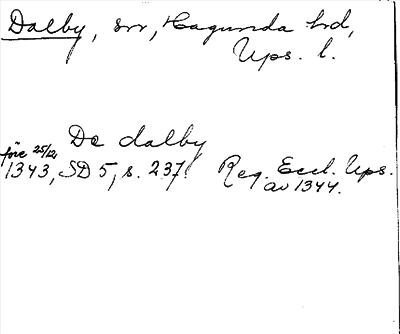 Dalby, sn, Hagunda hd,
Ups. l.
De dalby
före 25/12
1343, SD 5, s. 237. Reg. Eccl. Ups.
av 1344.